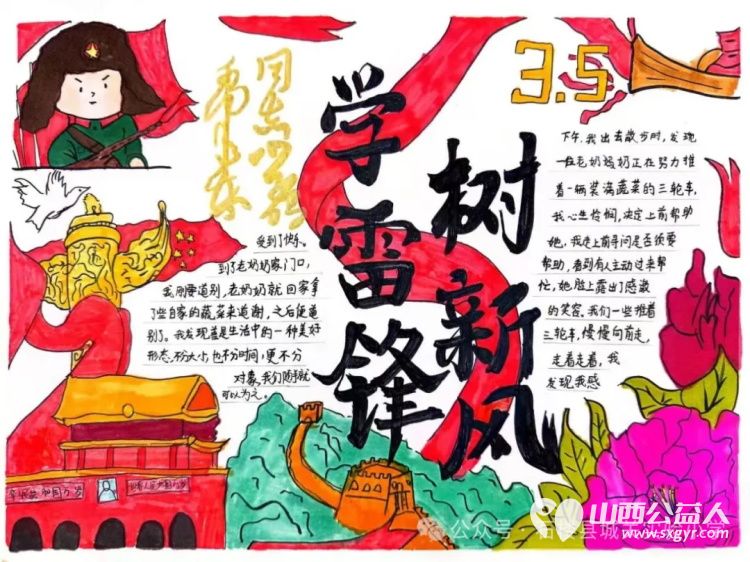 3.5
学雷锋
树新风
下午,我出去散步时,发现
一位老奶奶奶正在努力推
着一辆装满蔬菜的三轮车,
我心生怜悯,决定上前帮助
她,我走上前寻问是否须要
帮助,看到有人主动过来帮
忙,她脸上露出了感激
的笑容。我们一些推着
三轮车,慢慢向前走,
走着走着,我
发现我感
受到了快乐。
到了老奶奶家门口,
我刚要道别,老奶奶就回家拿
了些自家的蔬菜来道谢,之后便道
别了。我发现善是生活中的一种美好
形态,不分大小,也不分时间,更不分
对象,我们随手就
可以为之。
山西公益人
www.sxgyr.com
公众号